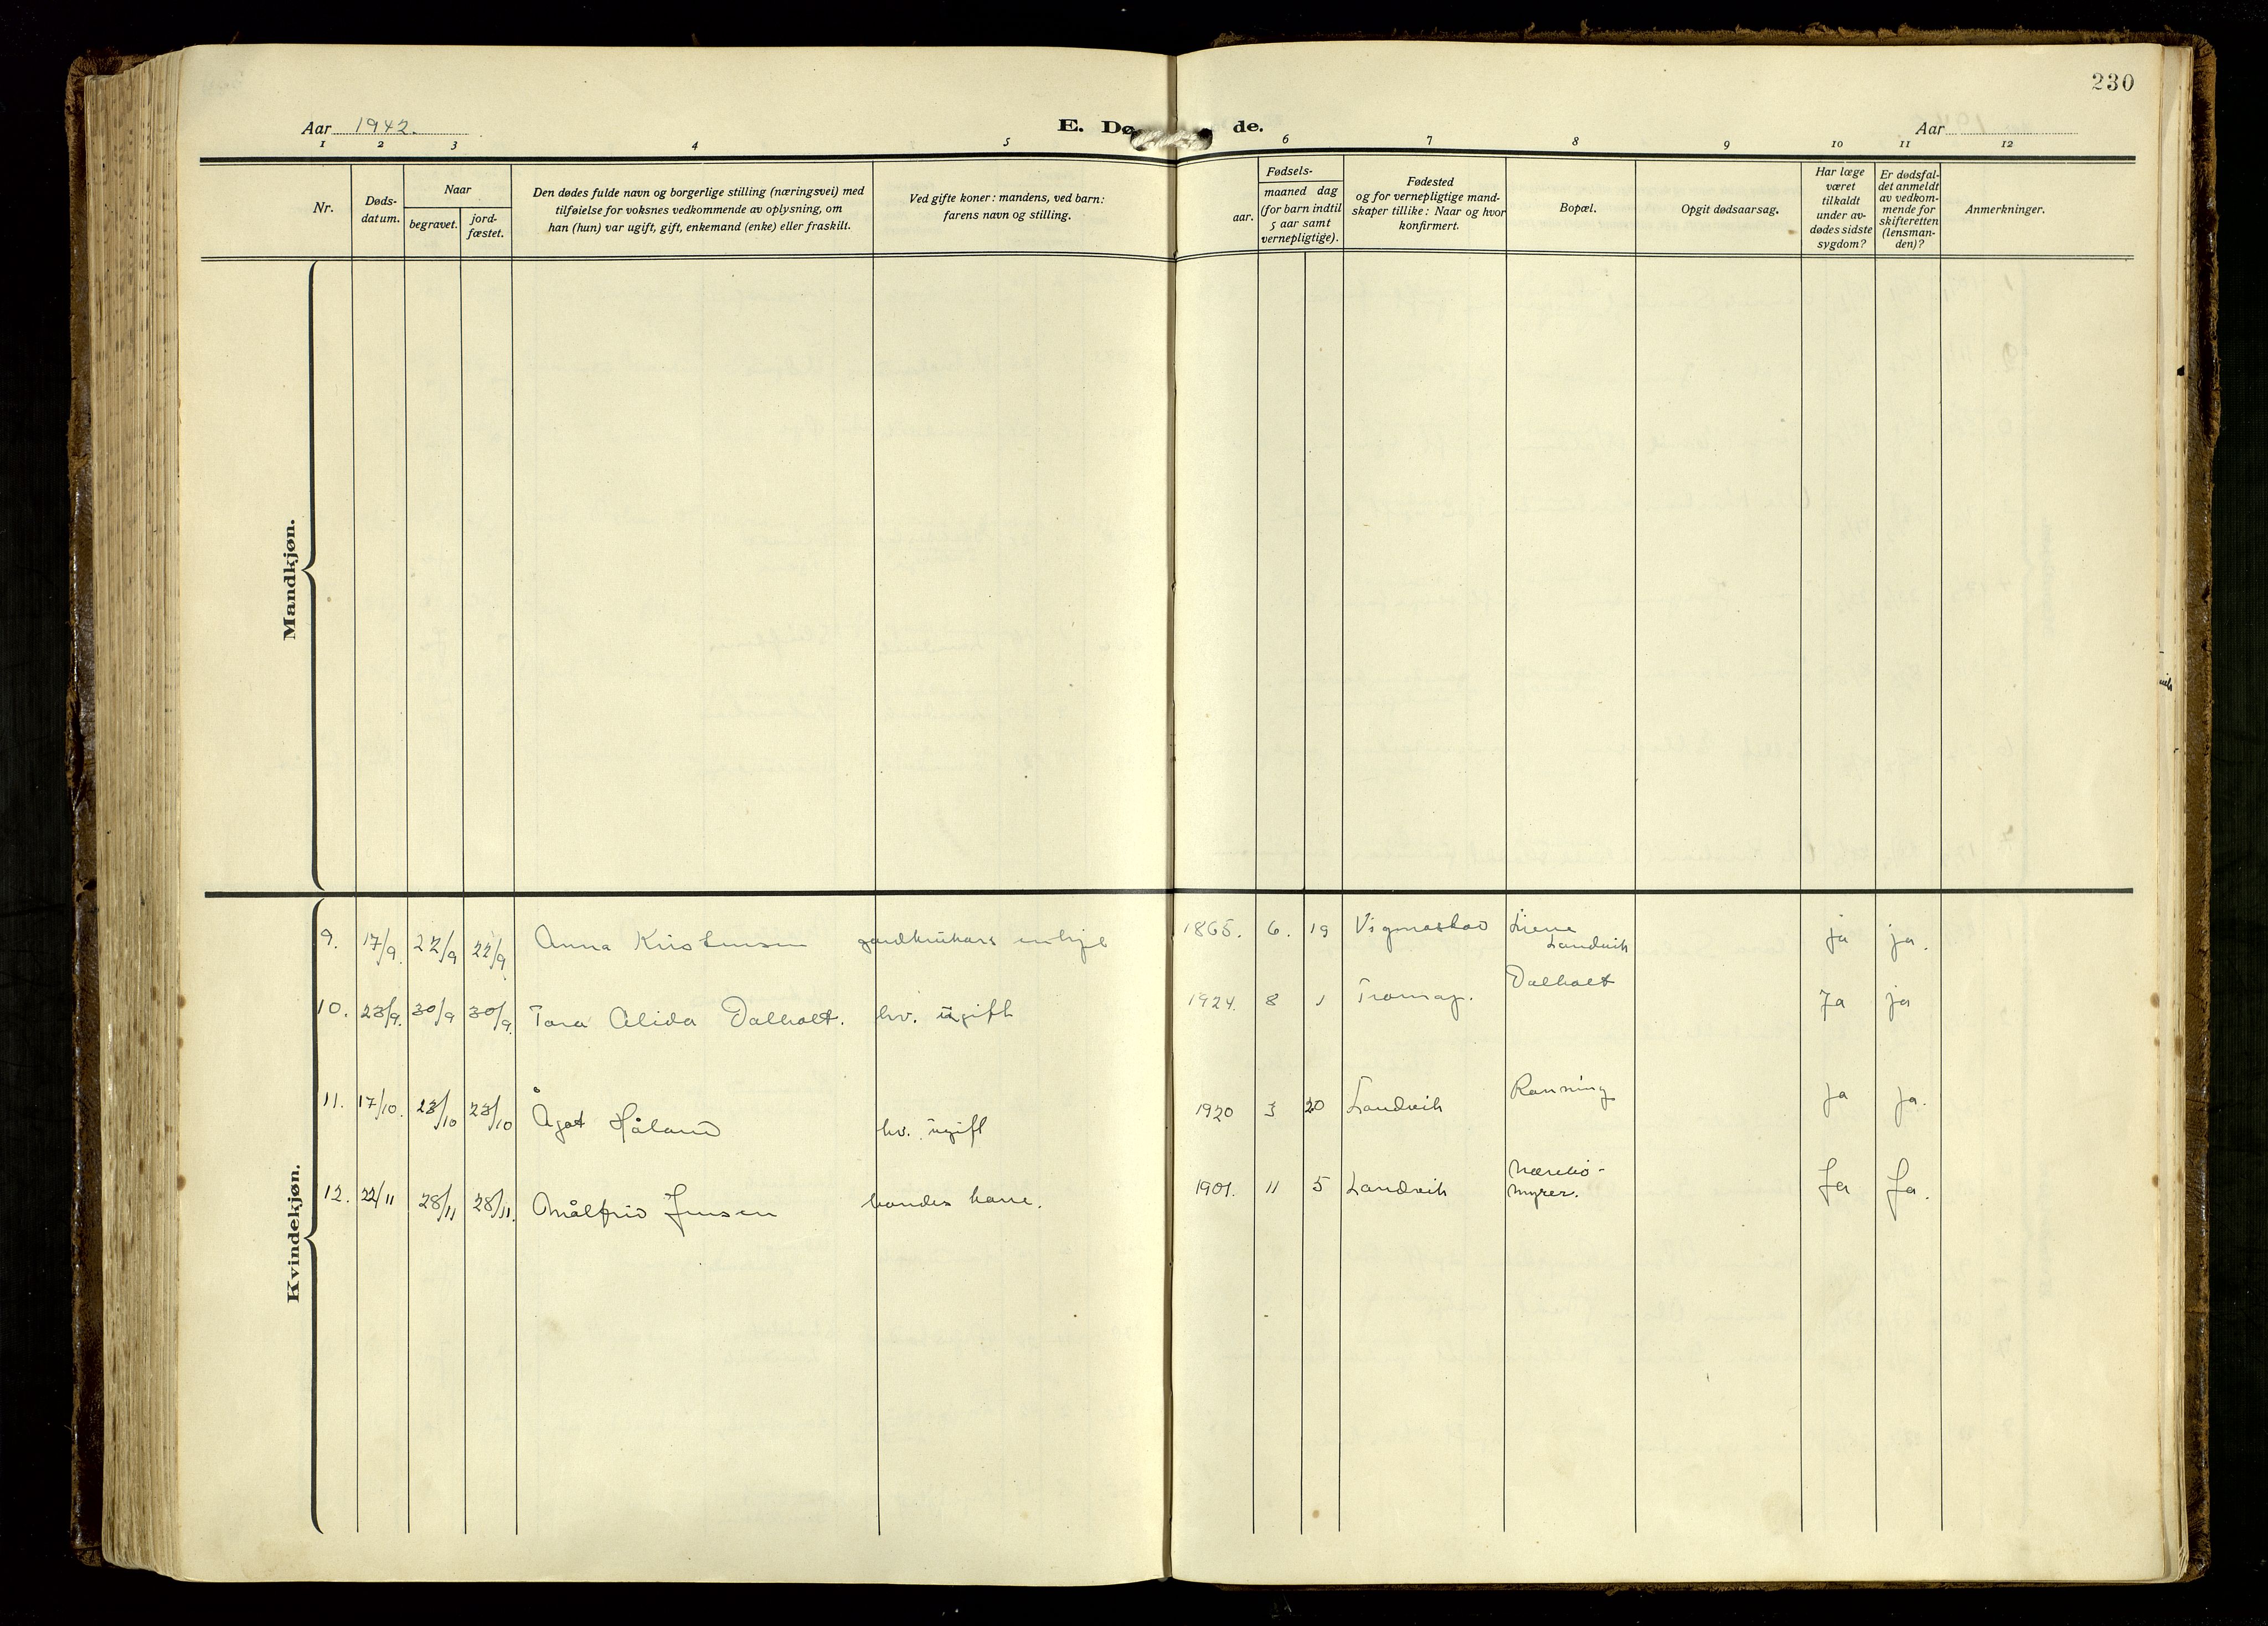 230
Aar 1942.
E. Dø de.
Aar
1 2 3 4 5 6 7 8 9 10 11 12
Nr.
Døds-
datum.
Naar
begravet.
jord-
fæstet.
Den dødes fulde navn og borgerlige stilling (næringsvei) med
tilføielse for voksnes vedkommende av oplysning, om
han (hun) var ugift, gift, enkemand (enke) eller fraskilt.
Ved gifte koner: mandens, ved barn:
farens navn og stilling.
Fødsels-
aar.
maaned dag
(for barn indtil
5 aar samt
vernepligtige).
Fødested
og for vernepligtige mand-
skaper tillike: Naar og hvor
konfirmert.
Bopæl.
Opgit dødsaarsag.
Har læge
været
tilkaldt
under av-
dødes sidste
sygdom?
Er dødsfal-
det anmeldt
av vedkom-
mende for
skifteretten
(lensman-
den)?
Anmerkninger.
Mandkjøn.
Kvindekjøn.
9. 17/9. 22/9 22/9. Anna Kristensen 1865. 6. 19 Vigmostad Liene
Landvik ja ja.
10. 23/9. 30/9 30/9. Tora Alida Dalholt. hv. ugift 1924. 8 1 Tromøy. Dalholt Ja ja
11. 17/10. 23/10 23/10 Ågot Håland hv. ugift 1920 3 20 Landvik Rønning Ja Ja.
12. 22/11 28/11 28/11. Målfrid Jensen bondes kone. 1901. 11 5 Landvik
myrer. Ja Ja.